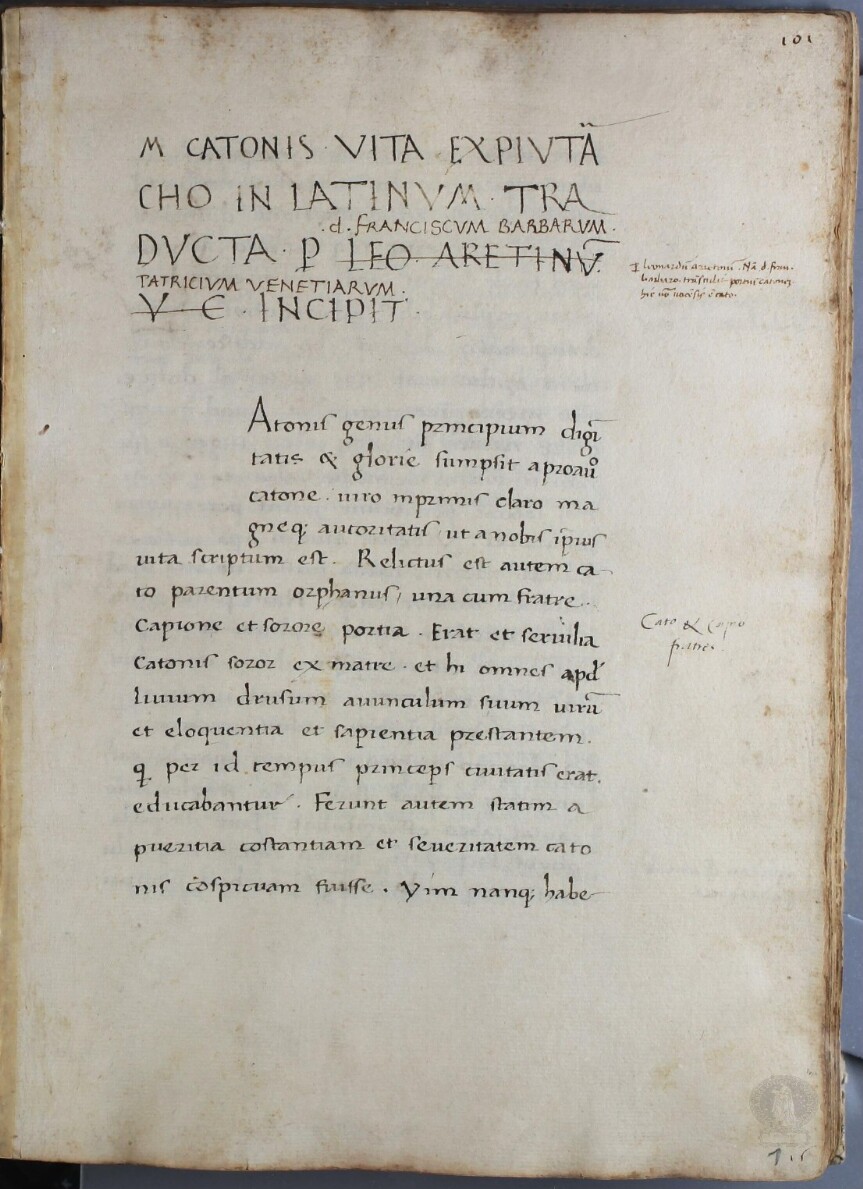 101
M CATONIS VITA EXPIVTA̅
CHO IN LATINVM · TRA
.d. FRANCISCVM BARBARVM.
DVCTA · P LEO ARETINV̅.
TATRICIVM VENETIARVM.
V E · INCIPIT.
leonardu̅ aretinu̅. Na̅ d. fran.
Atonis genus principium digi̅
tatis & glorie sumpsit a proauo
catone. uiro inprimis claro ma
gneq; autoritatis ut a nobis ipius
uita scriptum est. Relictus est autem ca
to parentum orphanus, una cum fratre.
Capione et sorore portia. Erat et seruilia
Catonis soror ex matre. et hi omnes apd
liuium drusum auunculum suum uiru̅
et eloquentia et sapientia prestantem.
q. per id tempus princeps ciuitatis erat.
educabantur. Ferunt autem statim a
pueritia costantiam et seueritatem cato
nis co̅spicuam fuisse. Vim nanq; habe
Cato & Capio
fratres.